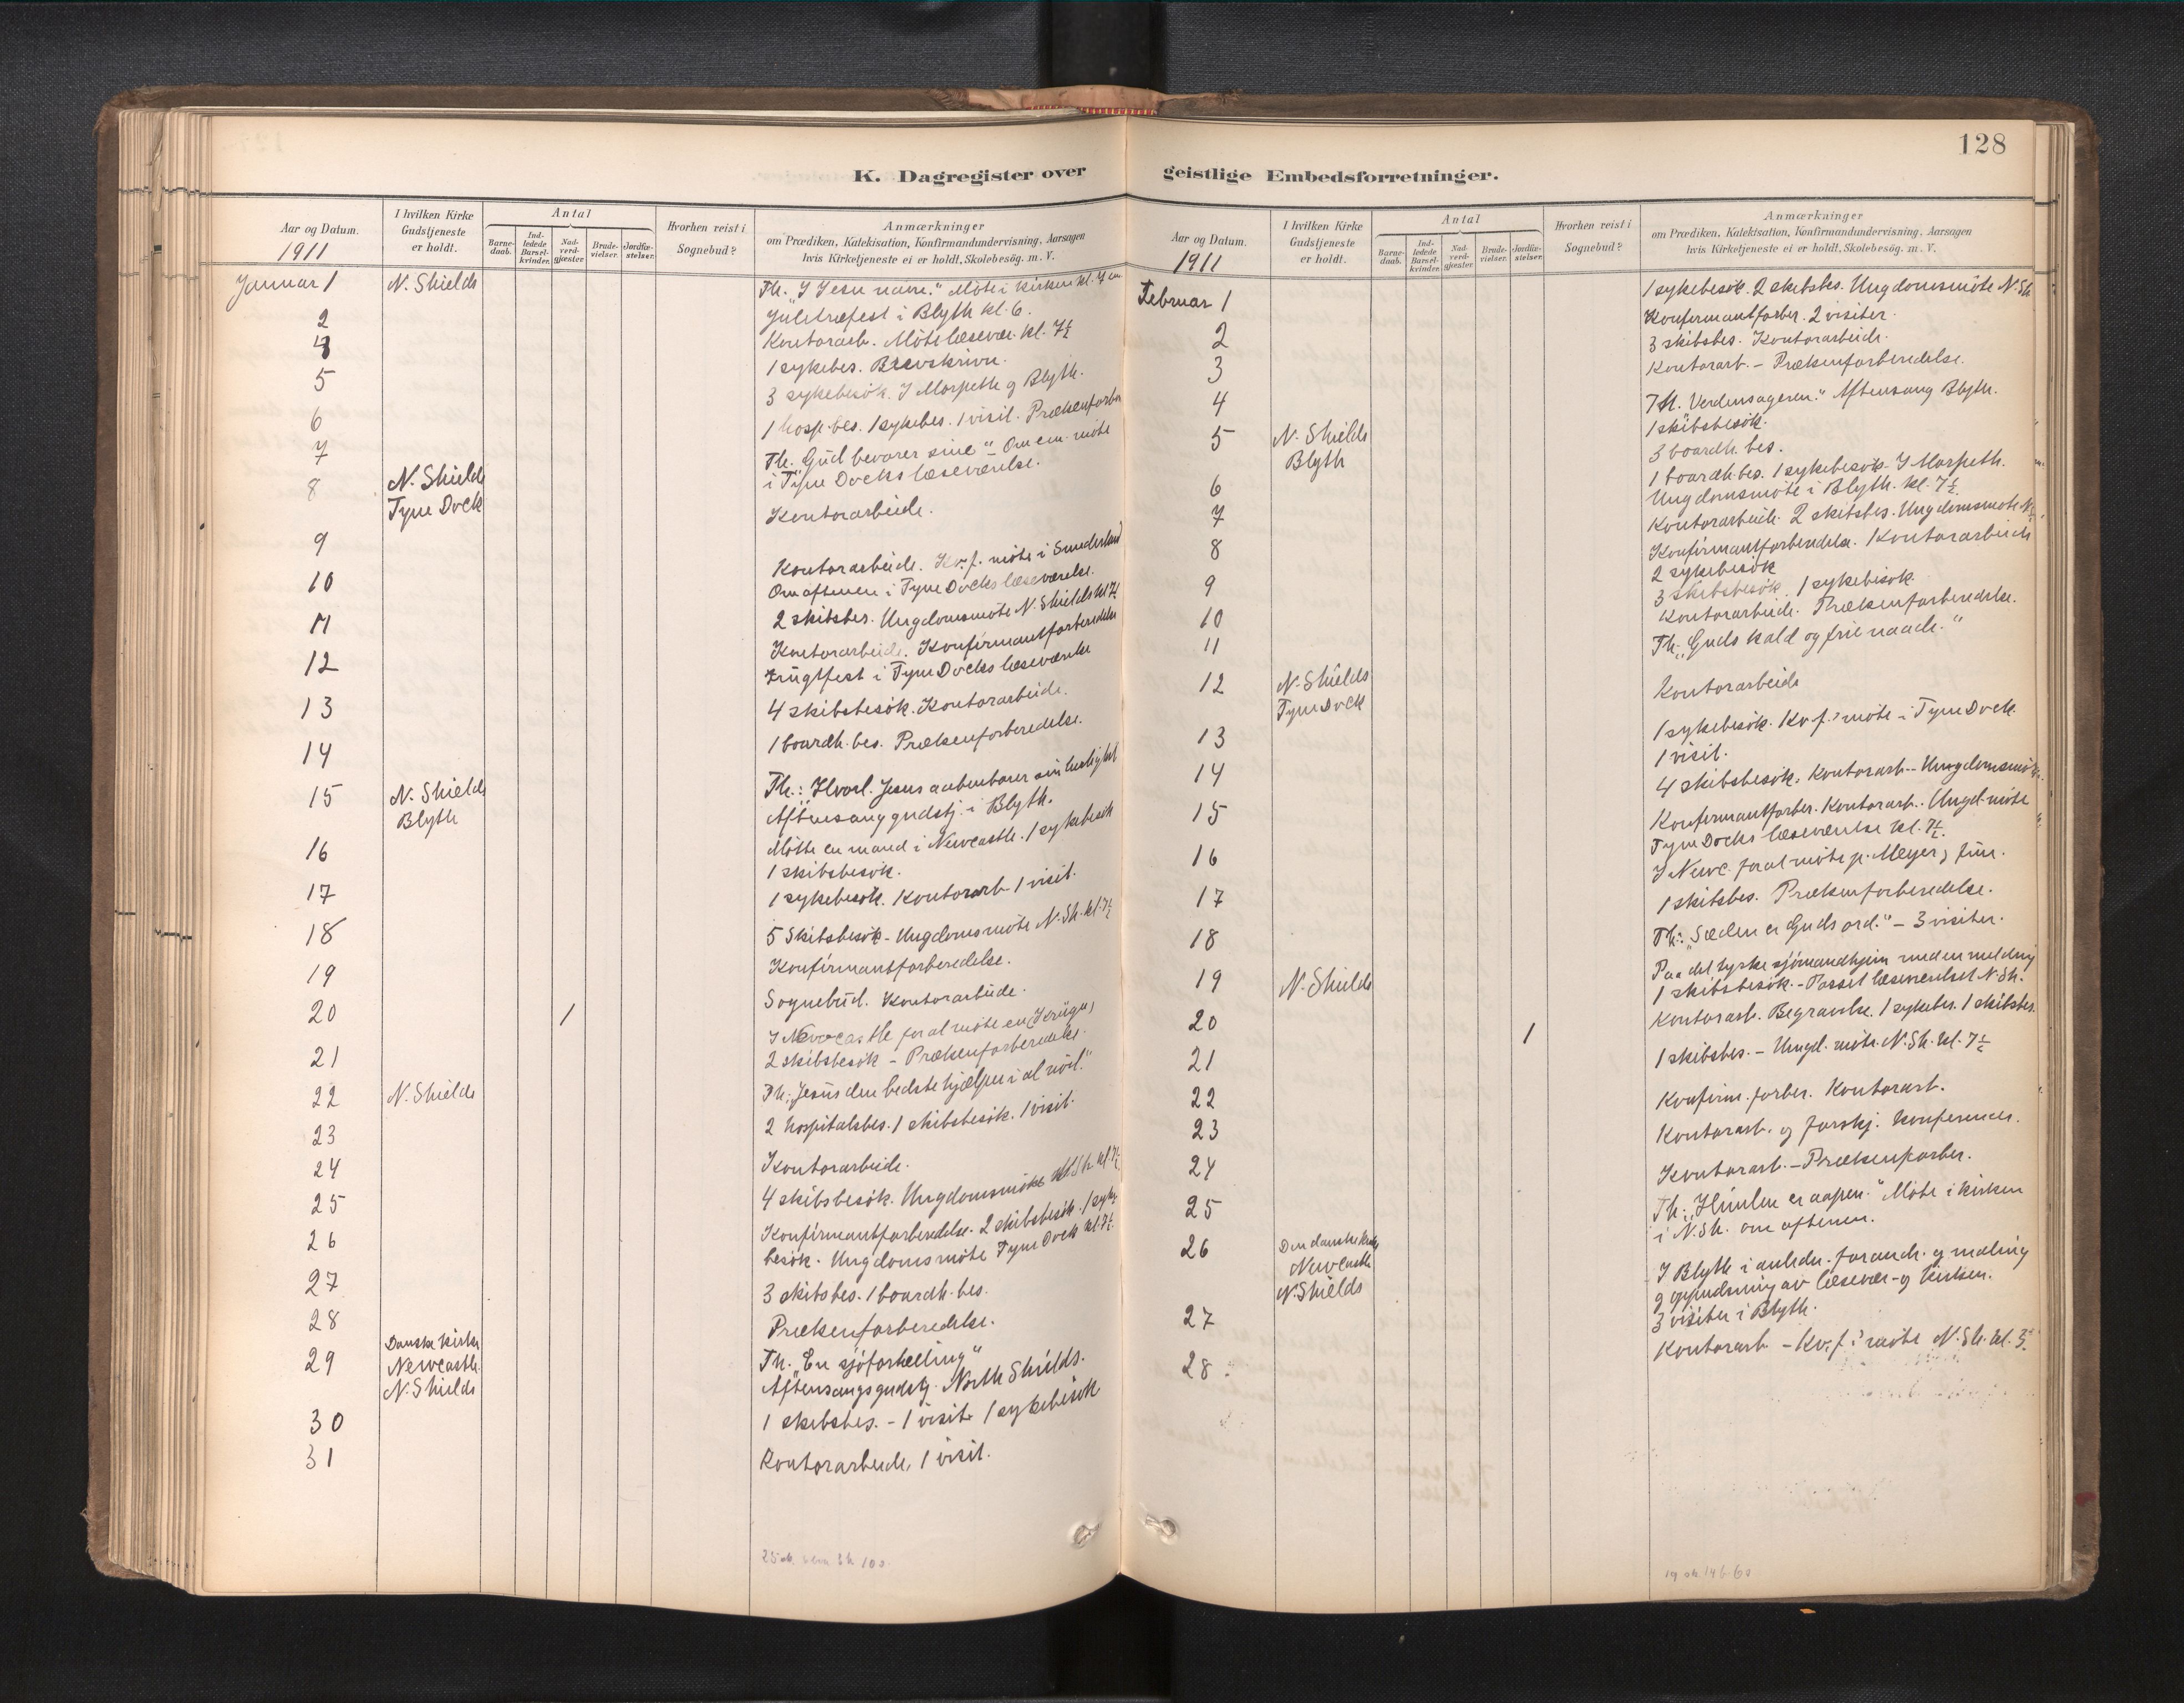 128
K. Dagregister over
geistlige Embedsforretninger.
Aar og Datum.
1911
I hvilken Kirke Gudstjeneste er holdt.
Antal
Barnedaab.
Indledede Barselkvinder.
Nadverdgjæster.
Brudevielser.
Jordfæstelser.
Hvorhen reist i Sognebud?
Anmærkninger
om Prædiken, Katekisation, Konfirmandundervisning, Aarsagen
hvis Kirketjeneste ei er holdt, Skolebesög. m. V.
Januar 1 N. Shields Th. "I Jesu navn." Møte i kirken kl. 7
2 Juletræfest i Blyth kl. 6.
4 Kontorarb. Møte læsevær. kl. 7½
5 1 sykebes. Brevskrivn.
6 3 sykebesøk. I Morpeth og Blyth.
7 1 hosp. bes. 1 sykebes. 1 visit. Prækenforber
8 N. Shields Th. "Gud bevarer sine" - Om em. møte
Tyne Dock i Tyne Docks læseværelse.
9 Kontorarbeide.
10 Kontorarbeide. Kv. f. møte i Sunderland
Om aftenen i Tyne Docks læseværelse.
11 2 skibsbes. Ungdomsmøte N. Shields kl 7½
12 Kontorarbeide. Konfirmantforberedelse
Frugtfest i Tyne Docks læseværelse
13 4 skibsbesøk. Kontorarbeide.
14 1 boardh. bes. Prækenforberedelse.
15 N. Shields Th.: Hvorl. Jesus aabenbarer sin herlighet
Blyth Aftensanggudstj. i Blyth.
16 Møtte en mand i Newcastle. 1 sykebesøk
1 skibsbesøk.
17 1 sykebesøk. Kontorarb. 1 visit.
18 5 Skibsbesøk - Ungdomsmøte N. Sh. kl. 7½
19 Konfirmantforberedelse.
20 1 Sognebud. Kontorarbeide.
21 I Newcastle for at møte en (Krüger)
2 skibsbesøk - Prækenforberedelse.
22 N. Shields Th: "Jesus den bedste hjælper i al nöd."
23 2 hospitalsbes. 1 skibsbesøk. 1 visit.
24 Kontorarbeide.
25 4 skibsbesøk. Ungdomsmøte N. Sh. kl. 7½
26 Konfirmantforberedelse. 2 skibsbesøk. 1 syke-
besøk. Ungdomsmøte Tyne Dock kl. 7½.
27 3 skibsbes. 1 boardh. bes.
28 Prækenforberedelse.
29 Danske kirke Th. "En sjøfortælling"
Newcastle. Aftensangsgudstj. North Shields.
N. Shields
30 1 skibsbes. - 1 visit. 1 sykebesøk
31 Kontorarbeide, 1 visit.
Aar og Datum.
1911
I hvilken Kirke Gudstjeneste er holdt.
Antal
Barnedaab.
Indledede Barselkvinder.
Nadverdgjæster.
Brudevielser.
Jordfæstelser.
Hvorhen reist i Sognebud?
Anmærkninger
om Prædiken, Katekisation, Konfirmandundervisning, Aarsagen
hvis Kirketjeneste ei er holdt, Skolebesög. m. V.
Februar 1 1 sykebesøk. 2 skibsbes. Ungdomsmøte N. Sh
2 Konfirmantforber. 2 visiter.
3 3 skibsbes. Kontorarbeide.
4 Kontorarb. - Prækenforberedelse.
5 N. Shields Th. Verdensageren." Aftensang Blyth.
Blyth 1 skibsbesøk.
6 3 boardh. bes.
7 1 boardh. bes. 1 sykebesøk. I Morpeth.
Ungdomsmøte i Blyth. kl. 7½.
8 Kontorarbeide. 2 skibsbes. Ungdomsmøte
9 Konfirmantforberedelse. Kontorarbeide
2 sykebesøk
10 3 skibsbesøk. 1 sykebesøk
11 Kontorarbeide. Prækenforberedelse.
12 N. Shields Th: "Guds kald og frie naade."
Tyne Dock
13 Kontorarbeide
14 1 sykebesøk. Kv. f.' møte i Tyne Dock.
1 visit.
15 4 skibsbesøk. Kontorarb. - Ungdomsmöte
16 Konfirmantforber. Kontorarb. Ungd. møte
Tyne Docks læseværelse kl. 7½.
17 I Newc. for at møte p. Meyer, Fin.
18 1 skibsbes. Prækenforberedelse.
19 N. Shields Th: "Sæden er Guds ord." - 3 visiter.
20 1 Paa det tyske sjömandshjem uden melding
1 skibsbesøk. - Passet læseværelset N. Sh.
21 Kontorarb. Begravelse. 1 sykebes. 1 skibsbes.
22 1 skibsbes. - Ungd. møte. N. Sh. kl. 7½
23 Konfirm. forber. Kontorarb.
24 Kontorarb. og forskj. konferencer.
25 Kontorarb. - Prækenforber.
26 Den danske kirke Th. "Himlen er aapen." Møte i kirken
Newcastle i N. Sh. om aftenen.
N. Shields
27 I Blyth i anledn. forandr. og maling
og opundsning av læsevær. og kirken.
3 visiter i Blyth.
28 Kontorarb - Kv. f.' møte N. Sh. kl. 3